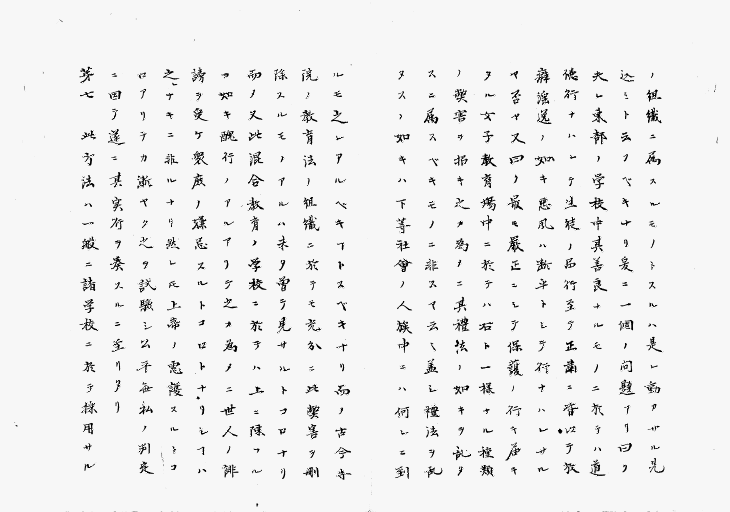 ノ組織ニ属スルモノトスルハ是レ動カサル見
込ミト云フベキナリ爰ニ一個ノ問題アリ曰ク
夫レ東部ノ学校中其善良ナルモノニ於テハ道
徳行ナハレテ生徒ノ品行至テ正肅ニ皆以テ放
癖淫逸ノ如キ悪風ハ断乎トシテ行ナハレサル
ヤ否ヤ又曰ク最モ厳正ニシテ保護ノ行キ届キ
タル女子教育場中ニ於テハ右ト一様ナル種類
ノ弊害ヲ招キ之カ為メニ其禮法ノ如キヲ乱タ
スニ属スベキモノニ非スヤ云々蓋シ禮法ヲ乱
タスノ如キハ下等社會ノ人族中ニハ何レニ到
ルモ之レアルベキヿトスベキナリ而ノ古今寺
院ノ教育法ノ組織ニ於テモ充分ニ此弊害ヲ刪
除スルモノアルハ未タ曽テ見サルトコロナリ
而ノ又此混合教育ノ学校ニ於テハ上ニ陳フル
カ如キ醜行ノアルアリテ之カ為メニ世人ノ誹
謗ヲ受ケ衆庶ノ嫌忌スルトコロトナリシハ
之ナキニ非ルナリ然レ𪜈上帝ノ恵護スルトコ
ロアリテカ漸ヤク之ヲ試験シ公平無私ノ判定
ニ因テ遂ニ其実行ヲ奏スルニ至リタリ
第七　此方法ハ一般ニ諸学校ニ於テ採用サル